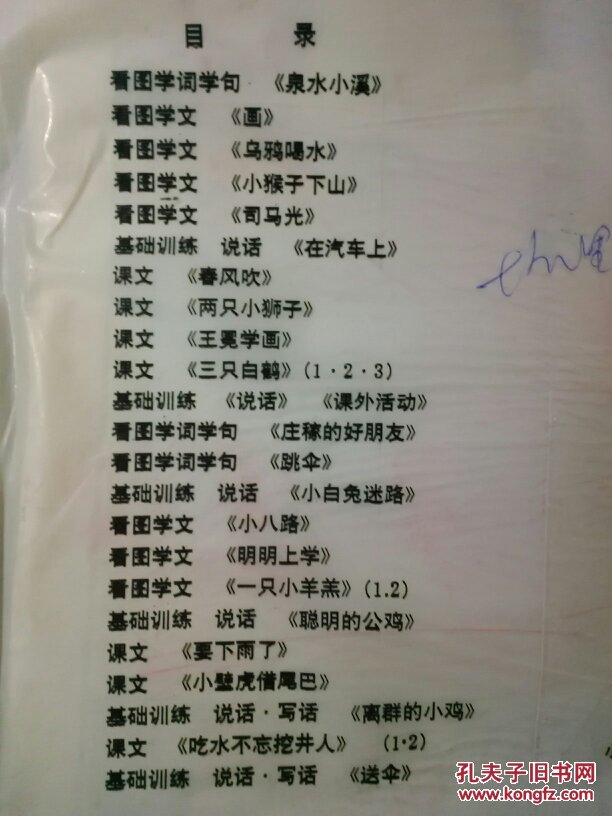 目 录
看图学词学句 《泉水小溪》
看图学文 《画》
看图学文 《乌鸦喝水》
看图学文 《小猴子下山》
看图学文 《司马光》
基础训练 说话 《在汽车上》
课文 《春风吹》
课文 《两只小狮子》
课文 《王冕学画》
课文 《三只白鹤》(1·2·3)
基础训练 《说话》 《课外活动》
看图学词学句 《庄稼的好朋友》
看图学词学句 《跳伞》
基础训练 说话 《小白兔迷路》
看图学文 《小八路》
看图学文 《明明上学》
看图学文 《一只小羊羔》(1.2)
基础训练 说话 《聪明的公鸡》
课文 《要下雨了》
课文 《小壁虎借尾巴》
基础训练 说话·写话 《离群的小鸡》
课文 《吃水不忘挖井人》 (1·2)
基础训练 说话·写话 《送伞》
孔夫子旧书网
www.kongfz.com